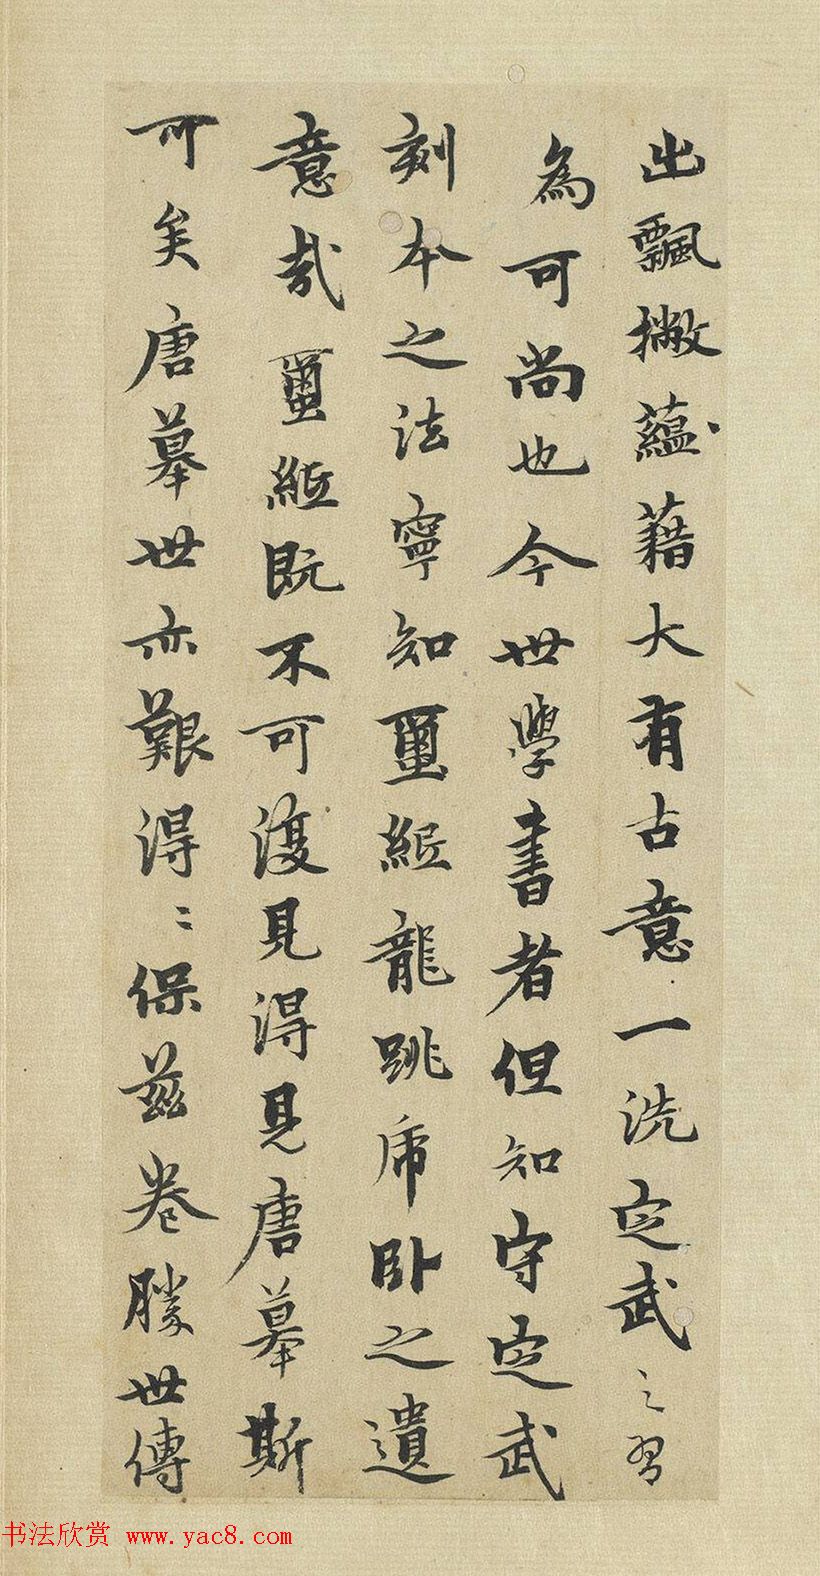 出飄撇蘊藉大有古意一洗定武之習
為可尚也今世學書者但知守定武
刻本之法寧知璽紙龍跳虎卧之遺
意哉璽紙既不可復見得見唐摹斯
可矣唐摹世亦艱得〻保茲卷勝世傳
书法欣赏 www.yac8.com